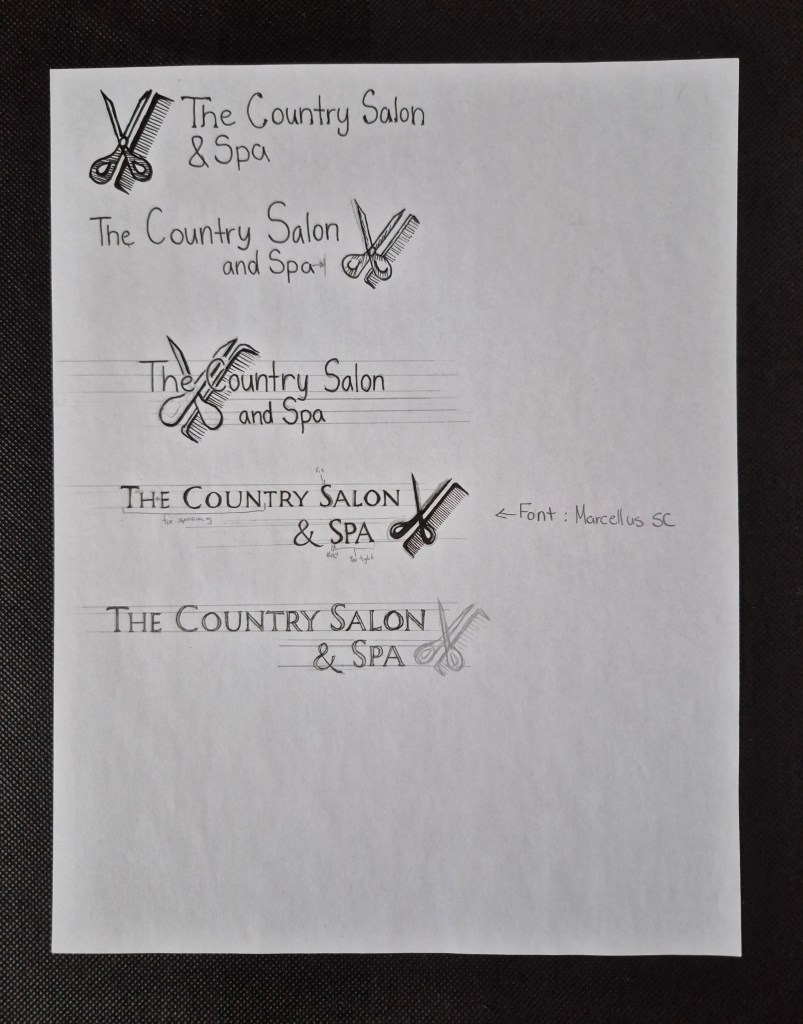 The Country Salon
& Spa
The Country Salon
and Spa
The Country Salon
and Spa
THE COUNTRY SALON
& SPA
← Font : Marcellus SC
for spacing
too tight
THE COUNTRY SALON
& SPA